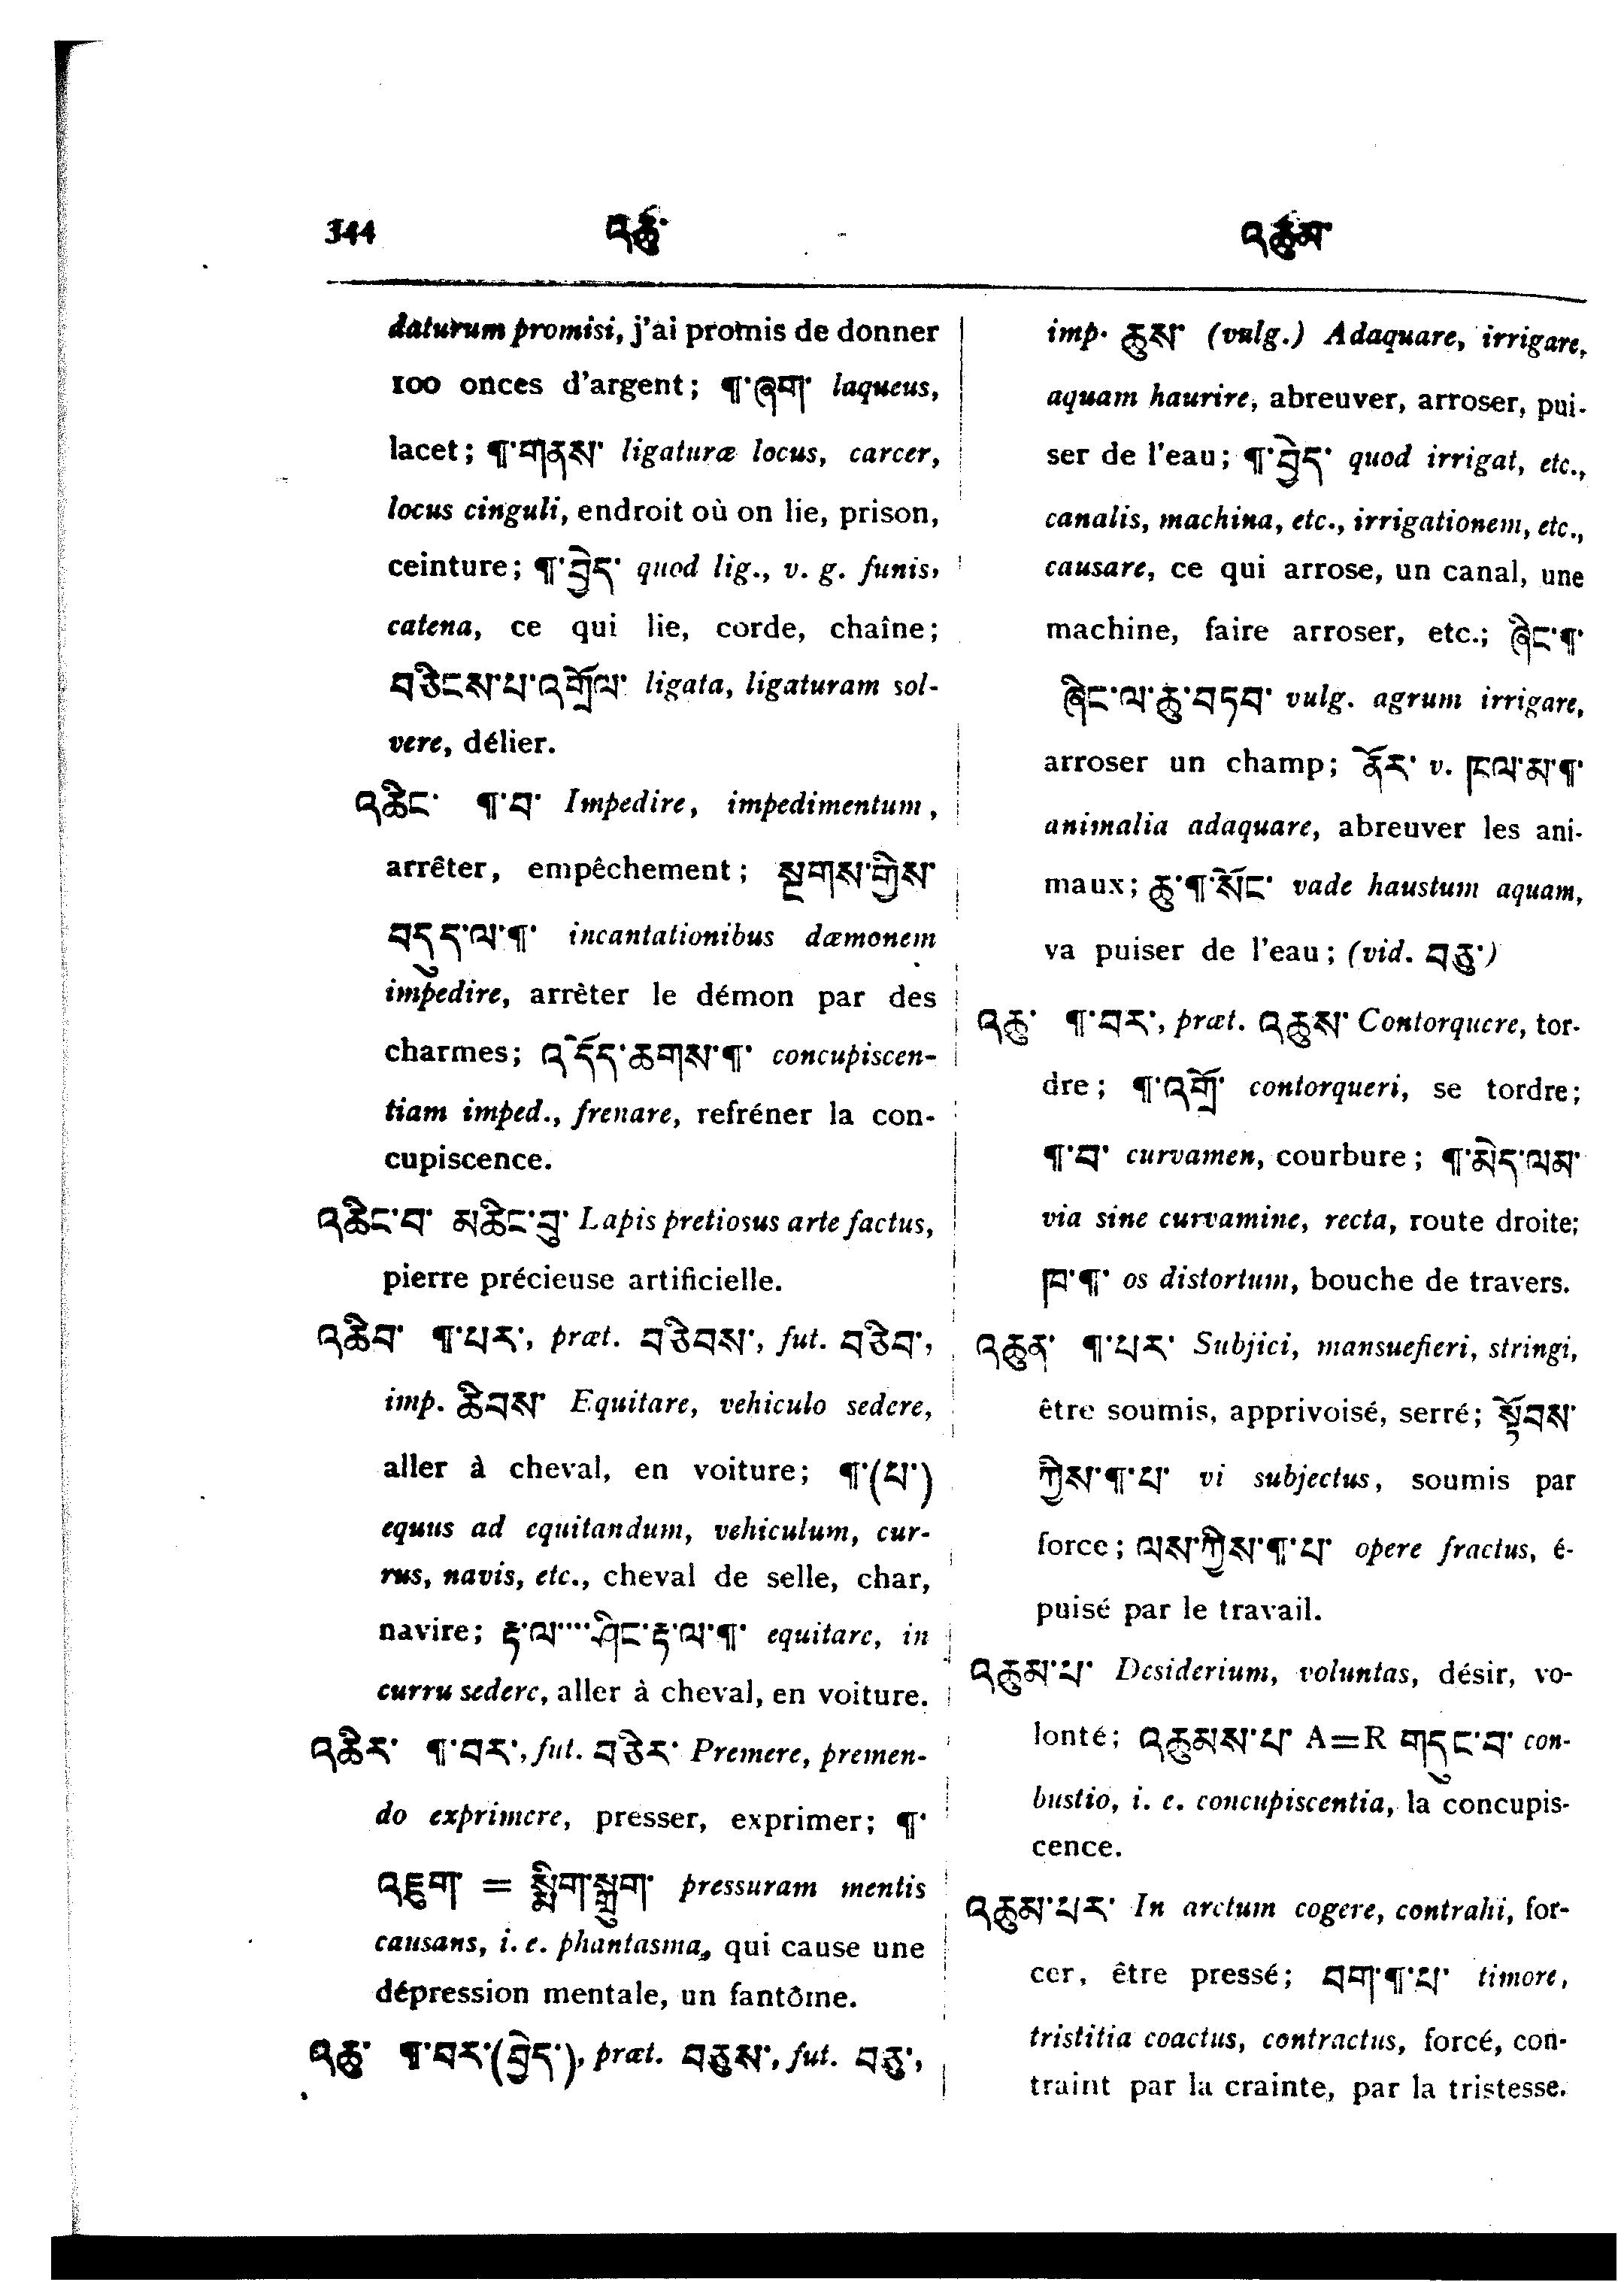 344 འཆུ་ འཆུམ་
daturum promisi, j'ai promis de donner
100 onces d'argent; ¶་ཞག་ laqueus,
lacet; ¶་གནས་ ligaturæ locus, carcer,
locus cinguli, endroit où on lie, prison,
ceinture; ¶་བྱེད་ quod lig., v. g. funis,
catena, ce qui lie, corde, chaîne;
བཅིངས་པ་འགྲོལ་ ligata, ligaturam sol-
vere, délier.
འཆིང་ ¶་བ་ Impedire, impedimentum,
arrêter, empêchement; སྔགས་ཀྱིས་
བདུད་ལ་¶་ incantationibus dæmonem
impedire, arrêter le démon par des
charmes; འདོད་ཆགས་¶་ concupiscen-
tiam imped., frenare, refréner la con-
cupiscence.
འཆིང་བ་ མཆིང་བུ་ Lapis pretiosus arte factus,
pierre précieuse artificielle.
འཆིབ་ ¶་པར་, præt. བཅིབས་, fut. བཅིབ་,
imp. ཆིབས་ Equitare, vehiculo sedere,
aller à cheval, en voiture; ¶་(པ་)
equus ad equitandum, vehiculum, cur-
rus, navis, etc., cheval de selle, char,
navire; རྟ་ལ་་་་ཤིང་རྟ་ལ་¶་ equitare, in
curru sedere, aller à cheval, en voiture.
འཆིར་ ¶་བར་, fut. བཅིར་ Premere, premen-
do exprimere, presser, exprimer; ¶་
འཇུག་ = སྨིག་སྒྱུག་ pressuram mentis
causans, i. e. phantasma, qui cause une
dépression mentale, un fantôme.
འཆུ་ ¶་བར་(བྱེད་), præt. བཅུས་, fut. བཅུ་,
imp. ཆུས་ (vulg.) Adaquare, irrigare,
aquam haurire, abreuver, arroser, pui-
ser de l'eau; ¶་བྱེད་ quod irrigat, etc.,
canalis, machina, etc., irrigationem, etc.,
causare, ce qui arrose, un canal, une
machine, faire arroser, etc.; ཞིང་¶་
ཞིང་ལ་ཆུ་བཏབ་ vulg. agrum irrigare,
arroser un champ; ནོར་ v. ཁལ་མ་¶་
animalia adaquare, abreuver les ani-
maux; ཆུ་¶་སོང་ vade haustum aquam,
va puiser de l'eau; (vid. བཅུ་)
འཆུ་ ¶་བར་, præt. འཆུས་ Contorquere, tor-
dre; ¶་འགྲོ་ contorqueri, se tordre;
¶་བ་ curvamen, courbure; ¶་མེད་ལམ་
via sine curvamine, recta, route droite;
ཁ་¶་ os distortum, bouche de travers.
འཆུན་ ¶་པར་ Subjici, mansuefieri, stringi,
être soumis, apprivoisé, serré; སྟོབས་
ཀྱིས་¶་པ་ vi subjectus, soumis par
force; ལས་ཀྱིས་¶་པ་ opere fractus, é-
puisé par le travail.
འཆུམ་པ་ Desiderium, voluntas, désir, vo-
lonté; འཆུམས་པ་ A=R གདུང་བ་ con-
bustio, i. e. concupiscentia, la concupis-
cence.
འཆུམ་པར་ In arctum cogere, contrahi, for-
cer, être pressé; བག་¶་པ་ timore,
tristitia coactus, contractus, forcé, con-
traint par la crainte, par la tristesse.